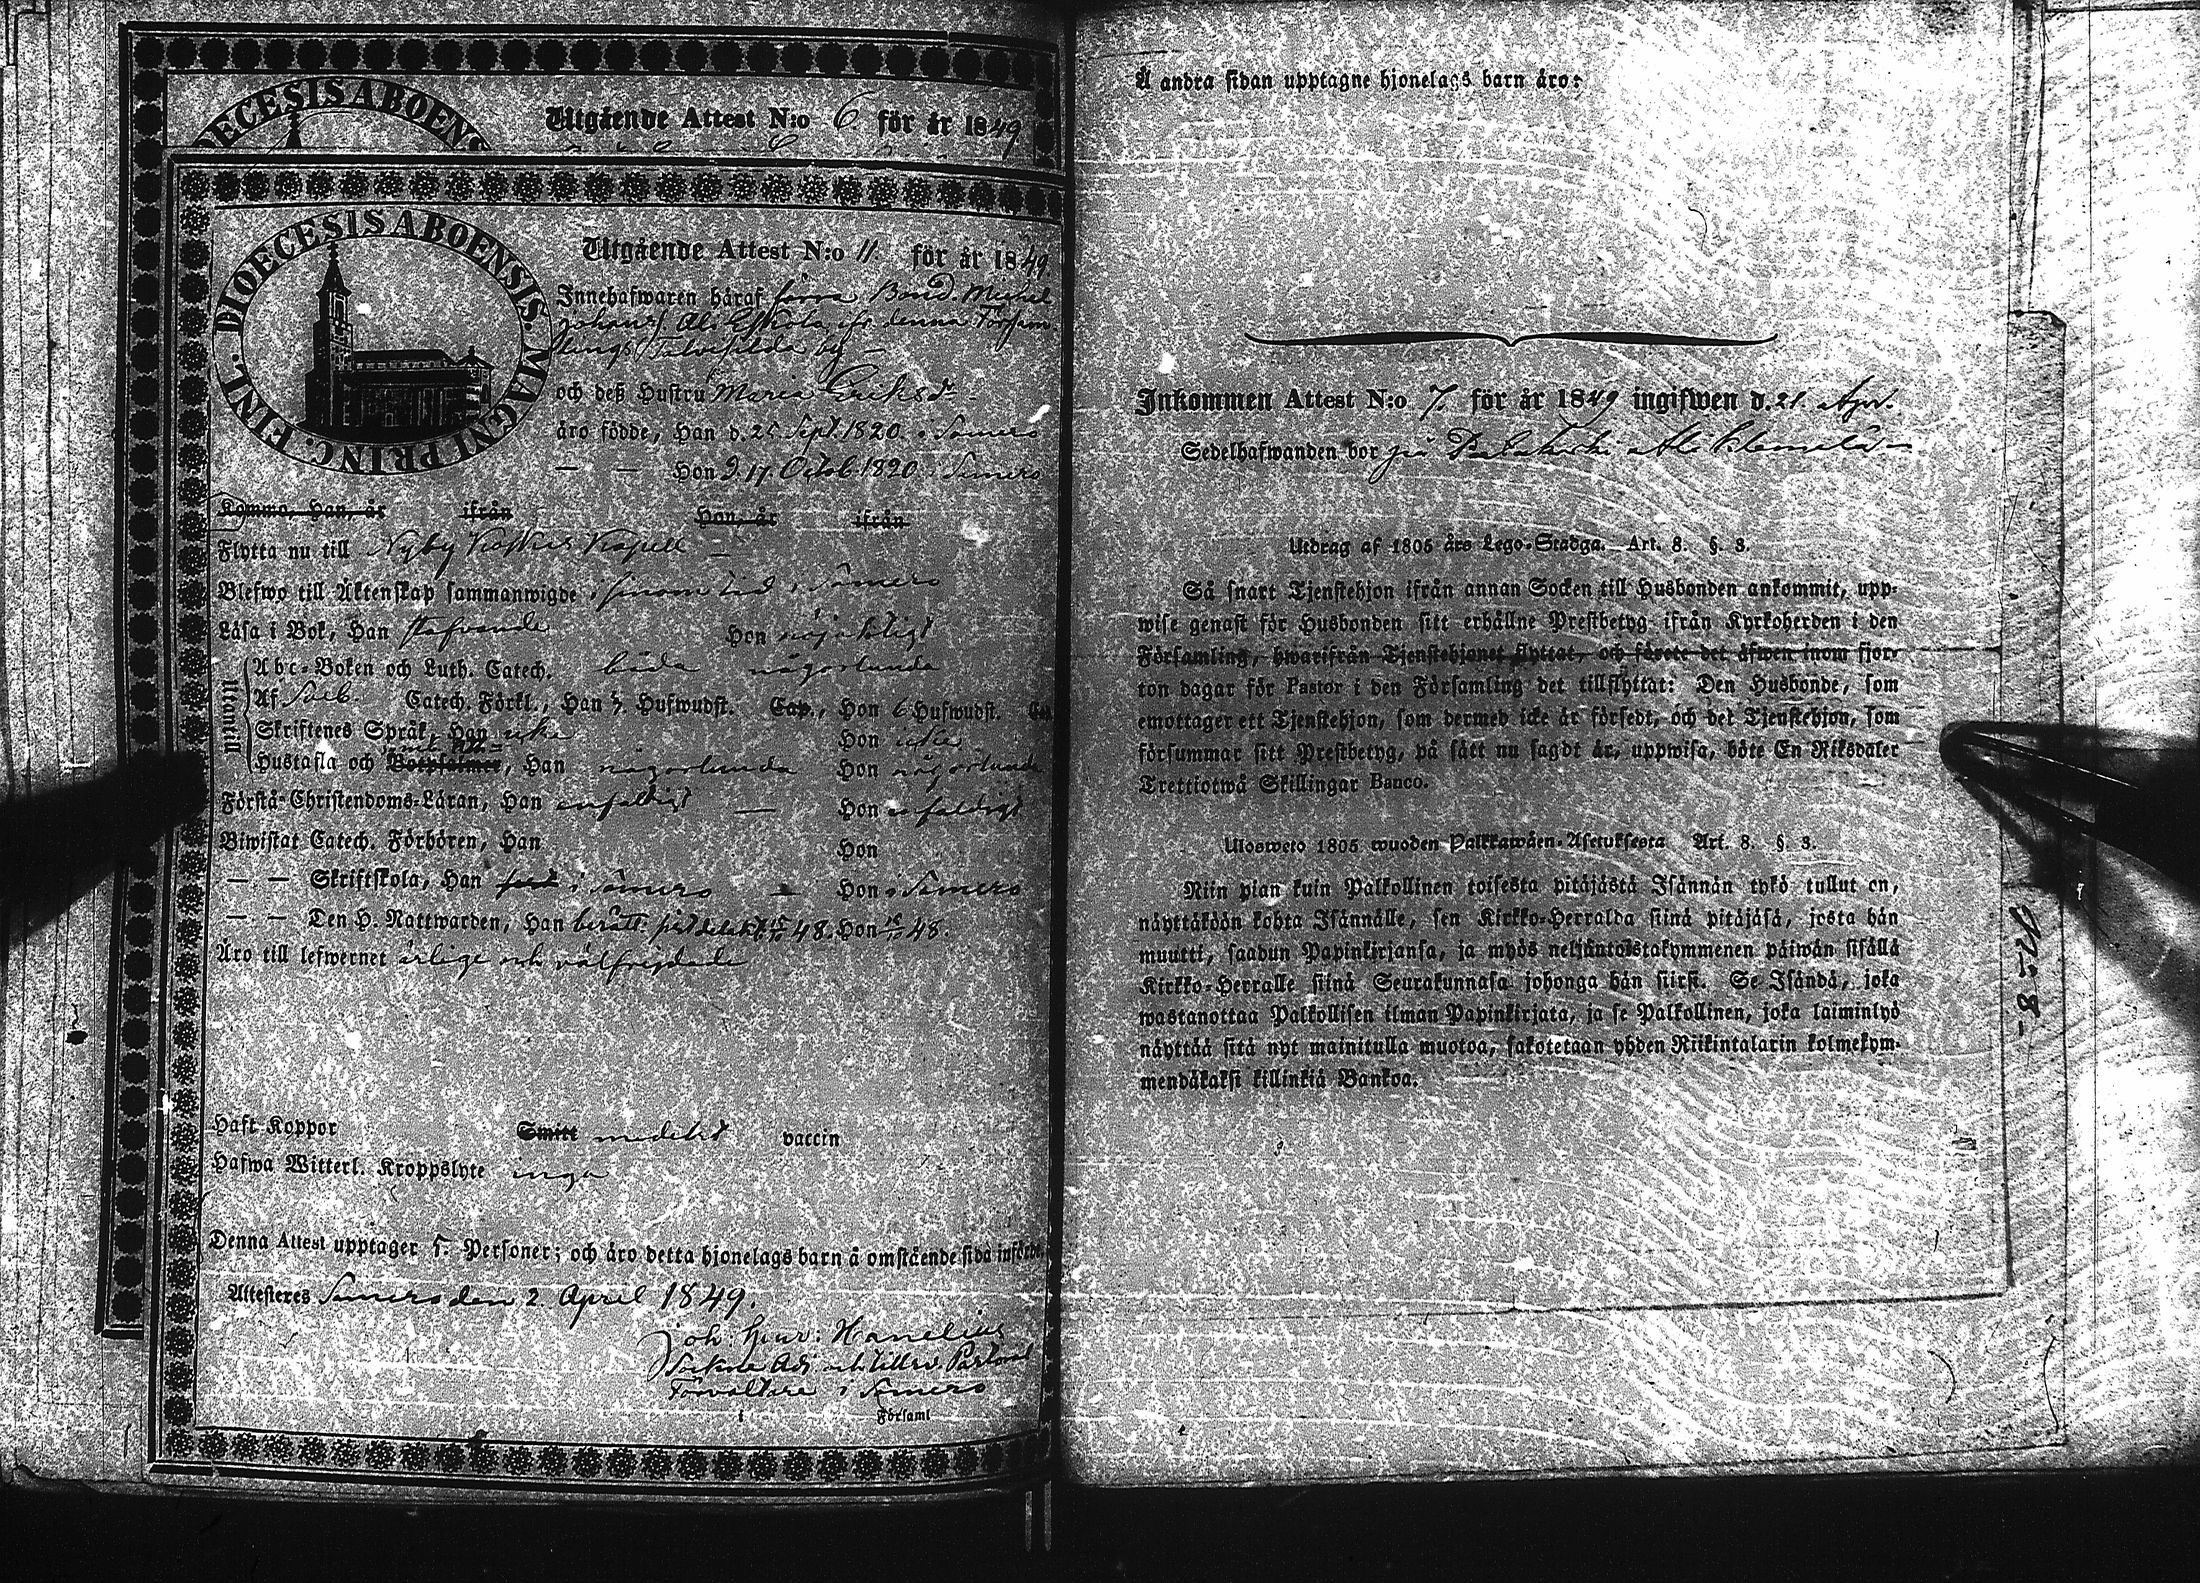 DIOECESIS ABOENS
Utgående Attest N:o 6. för år 1849
DIOECESIS ABOENSIS. MAGNI PRINC. FINL.
Utgående Attest N:o 11. för år 1849.
Innehafwaren häraf förra Bond. Michel
Johans. Ali Eskola, ifr. denna Församlings
by —
och deß Hustru Maria Eriksdr
äro födde, Han d. 25 Sept. 1820. i Somero
— — Hon d. 17 Octob. 1820. i Somero
Kommo, Han, år ifrån Hon, år ifrån
Flytta nu till Nyby Kapell —
Blefwo till Äktenskap sammanwigde i sinom tid i Somero
Läsa i Bok, Han stafvande Hon nöjaktigt
Utantill
Abc-Boken och Luth. Catech. båda någorlunda
Af Sveb. Catech. Förkl., Han 3. Hufwudst. Cap., Hon 6 Hufwudst. Cap
Skriftenes Språk, Han icke Hon icke
Hustafla och Botpsalmer, Han någorlunda Hon någorlunda
Förstå Christendoms-Läran, Han enfaldigt — Hon enfaldigt
Biwistat Catech. Förhören, Han Hon
— — Skriftskola, Han i Somero Hon i Somero
— — Den H. Nattwarden, Han berätt. 48. Hon 48.
Äro till lefwernet ärlige och välfrejdade
Haft Koppor Smitt meddelat vaccin
Hafwa Witterl. Kroppslyte inga
Denna Attest upptager 5. Personer; och äro detta hjonelags barn å omstående sida införde.
Attesteres Somero den 2. April 1849.
Joh: Henr: Hanelius
Sockne Adj. och tillförv. Pastorat
Förvaltare i Somero
Församl
Å andra sidan upptagne hjonelags barn äro:
Inkommen Attest N:o 7. för år 1849 ingifwen d. 21 Apr.
Sedelhafwanden bor på Ali Klemelä —
Utdrag af 1805 års Lego-Stadga. Art. 8. §. 3.
Så snart Tjenstehjon ifrån annan Socken till Husbonden ankommit, upp-
wise genast för Husbonden sitt erhållne Prestbetyg ifrån Kyrkoherden i den
Församling, hwarifrån Tjenstehjonet flyttat, och förete det äfwen inom fjor-
ton dagar för Pastor i den Församling det tillflyttat: Den Husbonde, som
emottager ett Tjenstehjon, som dermed icke är försedt, och det Tjenstehjon, som
försummar sitt Prestbetyg, på sätt nu sagdt är, uppwisa, böte En Riksdaler
Trettiotwå Skillingar Banco.
Ulosweto 1805 wuoden Palkkawäen-Asetuksesta Art. 8. §. 3.
Niin pian kuin Palkollinen toisesta pitäjästä Isännän tykö tullut on,
näyttäköön kohta Isännälle, sen Kirkko-Herralda siinä pitäjäsä, josta hän
muutti, saadun Papinkirjansa, ja myös neljäntoistakymmenen päiwän sisällä
Kirkko-Herralle siinä Seurakunnasa johonga hän siirst. Se Isändä, joka
wastanottaa Palkollisen ilman Papinkirjata, ja se Palkollinen, joka laiminlyö
näyttää sitä nyt mainitulla muotoa, sakotetaan yhden Riikintalarin kolmekym-
mendäkaksi killinkiä Bankoa.
928-